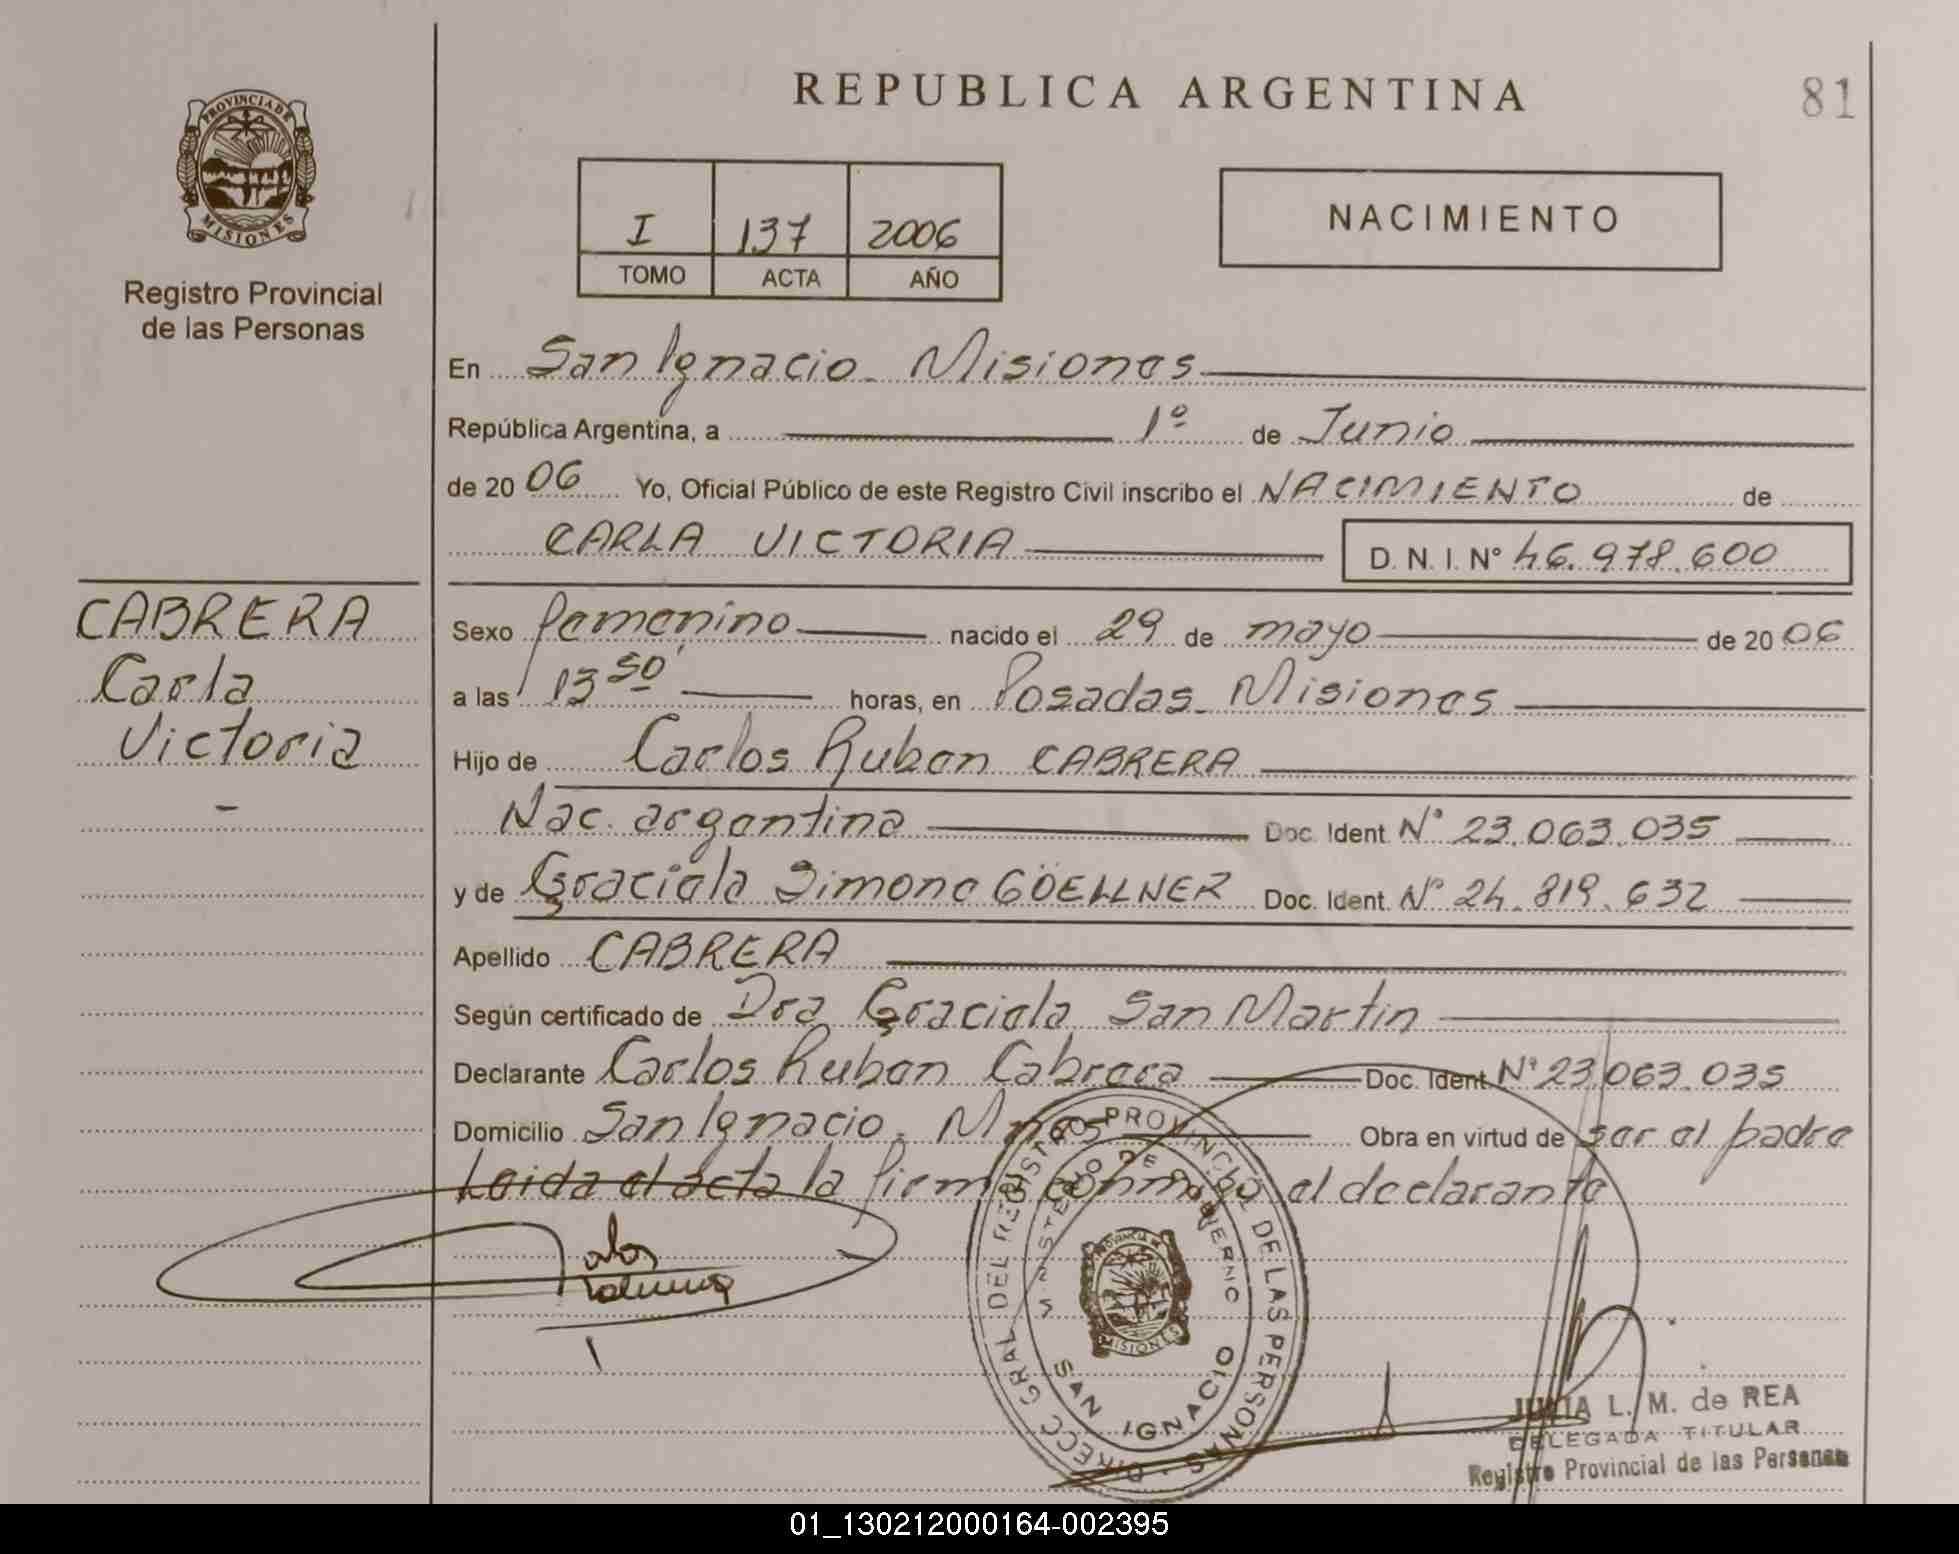 REPUBLICA ARGENTINA
81
PROVINCIA DE
MISIONES
Registro Provincial
de las Personas
I 137 2006
TOMO ACTA AÑO
NACIMIENTO
En San Ignacio. Misiones
República Argentina, a 1º de Junio
de 2006 Yo, Oficial Público de este Registro Civil inscribo el NACIMIENTO de
CARLA VICTORIA D. N. I. Nº 46.978.600
CABRERA
Carla
Victoria
-
Sexo femenino nacido el 29 de mayo de 2006
a las 13 50 horas, en Posadas. Misiones
Hijo de Carlos Ruben CABRERA
Nac. argentina Doc. Ident. Nº 23.063.035
y de Graciela Simone GÖELLNER Doc. Ident. Nº 24.819.632
Apellido CABRERA
Según certificado de Dra Graciela San Martin
Declarante Carlos Ruben Cabrera Doc. Ident. Nº 23.063.035
Domicilio San Ignacio. Mnes Obra en virtud de ser el padre
Leida el acta la firma conmigo el declarante
DIRECC GRAL DEL REGISTRO PROVINCIAL DE LAS PERSONAS
MINISTERIO DE GOBIERNO
PROVINCIA DE
MISIONES
SAN IGNACIO
JULIA L. M. de REA
DELEGADA TITULAR
Registro Provincial de las Personas
01_130212000164-002395